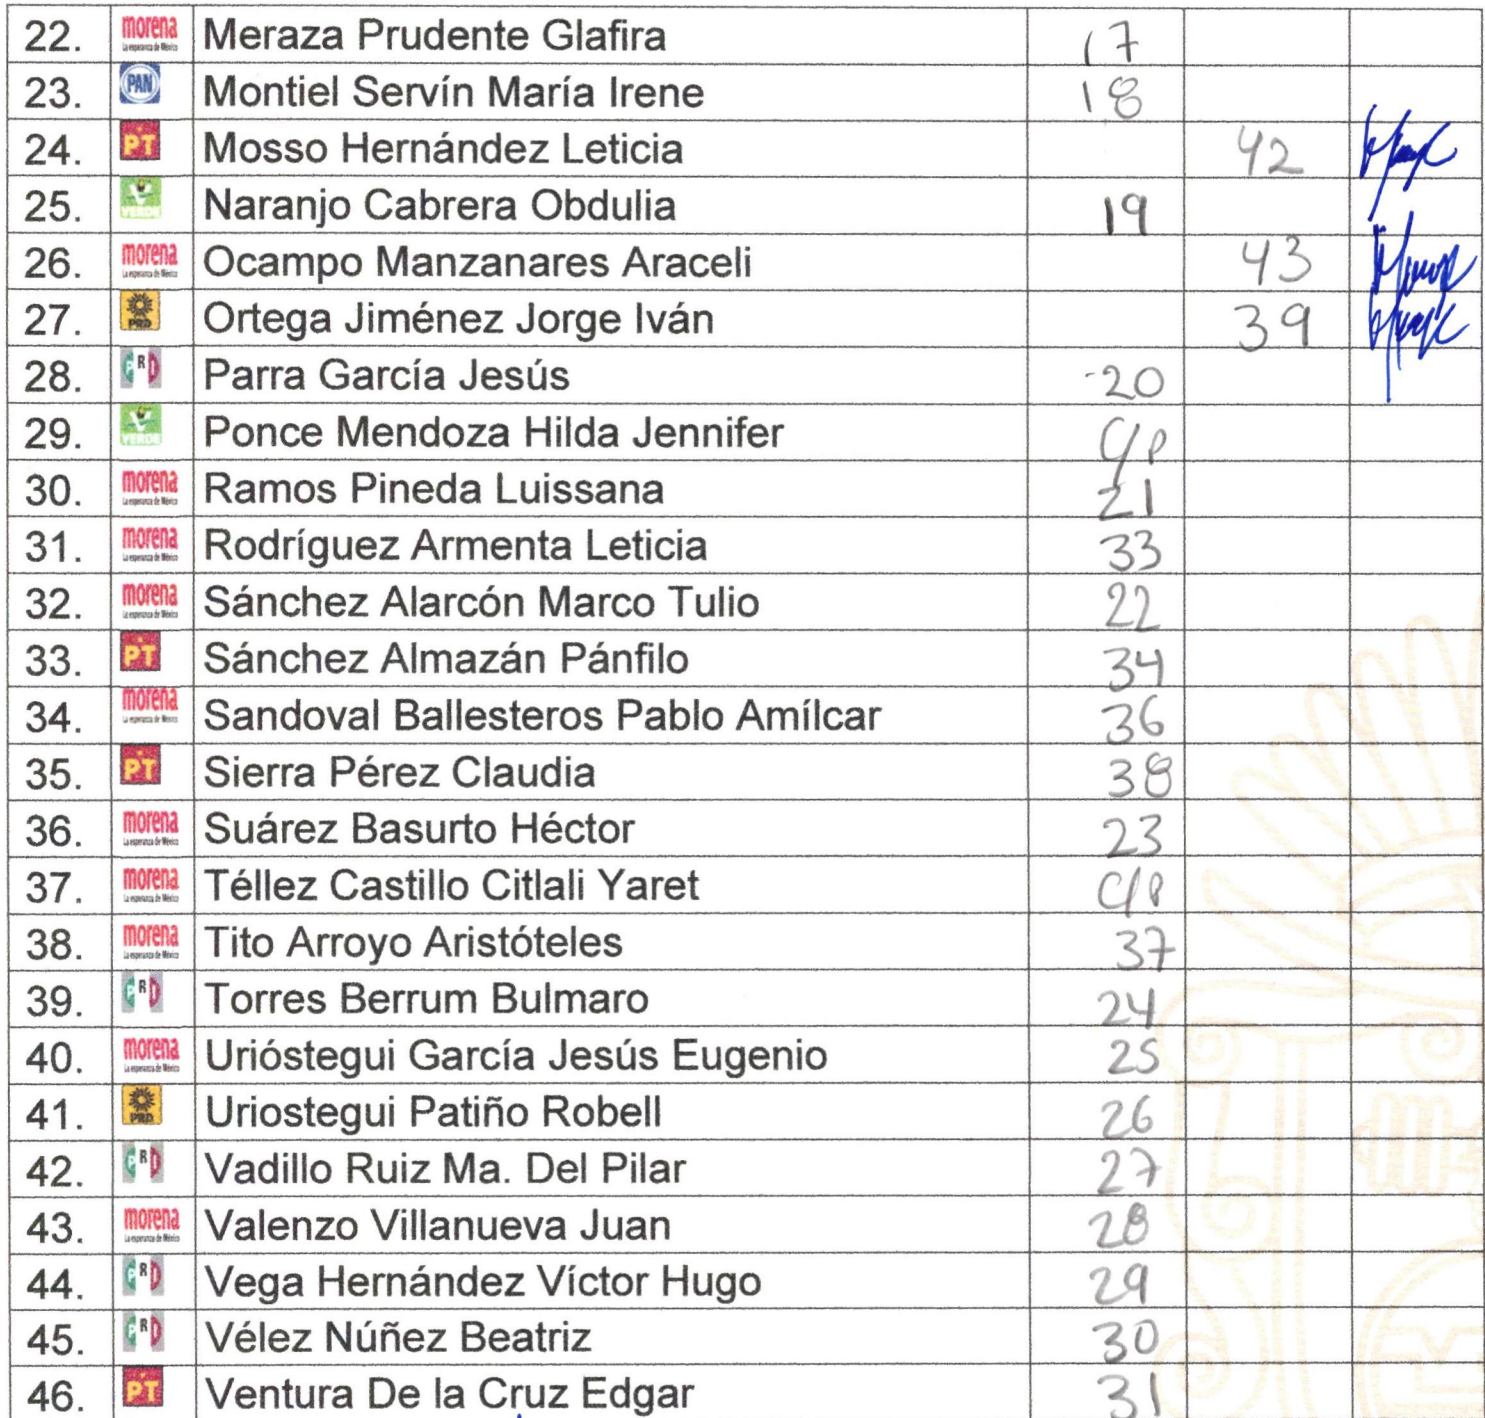 22. morena La esperanza de México Meraza Prudente Glafira 17
23. PAN Montiel Servín María Irene 18
24. PT Mosso Hernández Leticia 42
25. VERDE Naranjo Cabrera Obdulia 19
26. morena La esperanza de México Ocampo Manzanares Araceli 43
27. PRD Ortega Jiménez Jorge Iván 39
28. PRI Parra García Jesús 20
29. VERDE Ponce Mendoza Hilda Jennifer C/P
30. morena La esperanza de México Ramos Pineda Luissana 21
31. morena La esperanza de México Rodríguez Armenta Leticia 33
32. morena La esperanza de México Sánchez Alarcón Marco Tulio 22
33. PT Sánchez Almazán Pánfilo 34
34. morena La esperanza de México Sandoval Ballesteros Pablo Amílcar 36
35. PT Sierra Pérez Claudia 38
36. morena La esperanza de México Suárez Basurto Héctor 23
37. morena La esperanza de México Téllez Castillo Citlali Yaret C/P
38. morena La esperanza de México Tito Arroyo Aristóteles 37
39. PRI Torres Berrum Bulmaro 24
40. morena La esperanza de México Urióstegui García Jesús Eugenio 25
41. PRD Uriostegui Patiño Robell 26
42. PRI Vadillo Ruiz Ma. Del Pilar 27
43. morena La esperanza de México Valenzo Villanueva Juan 28
44. PRI Vega Hernández Víctor Hugo 29
45. PRI Vélez Núñez Beatriz 30
46. PT Ventura De la Cruz Edgar 31